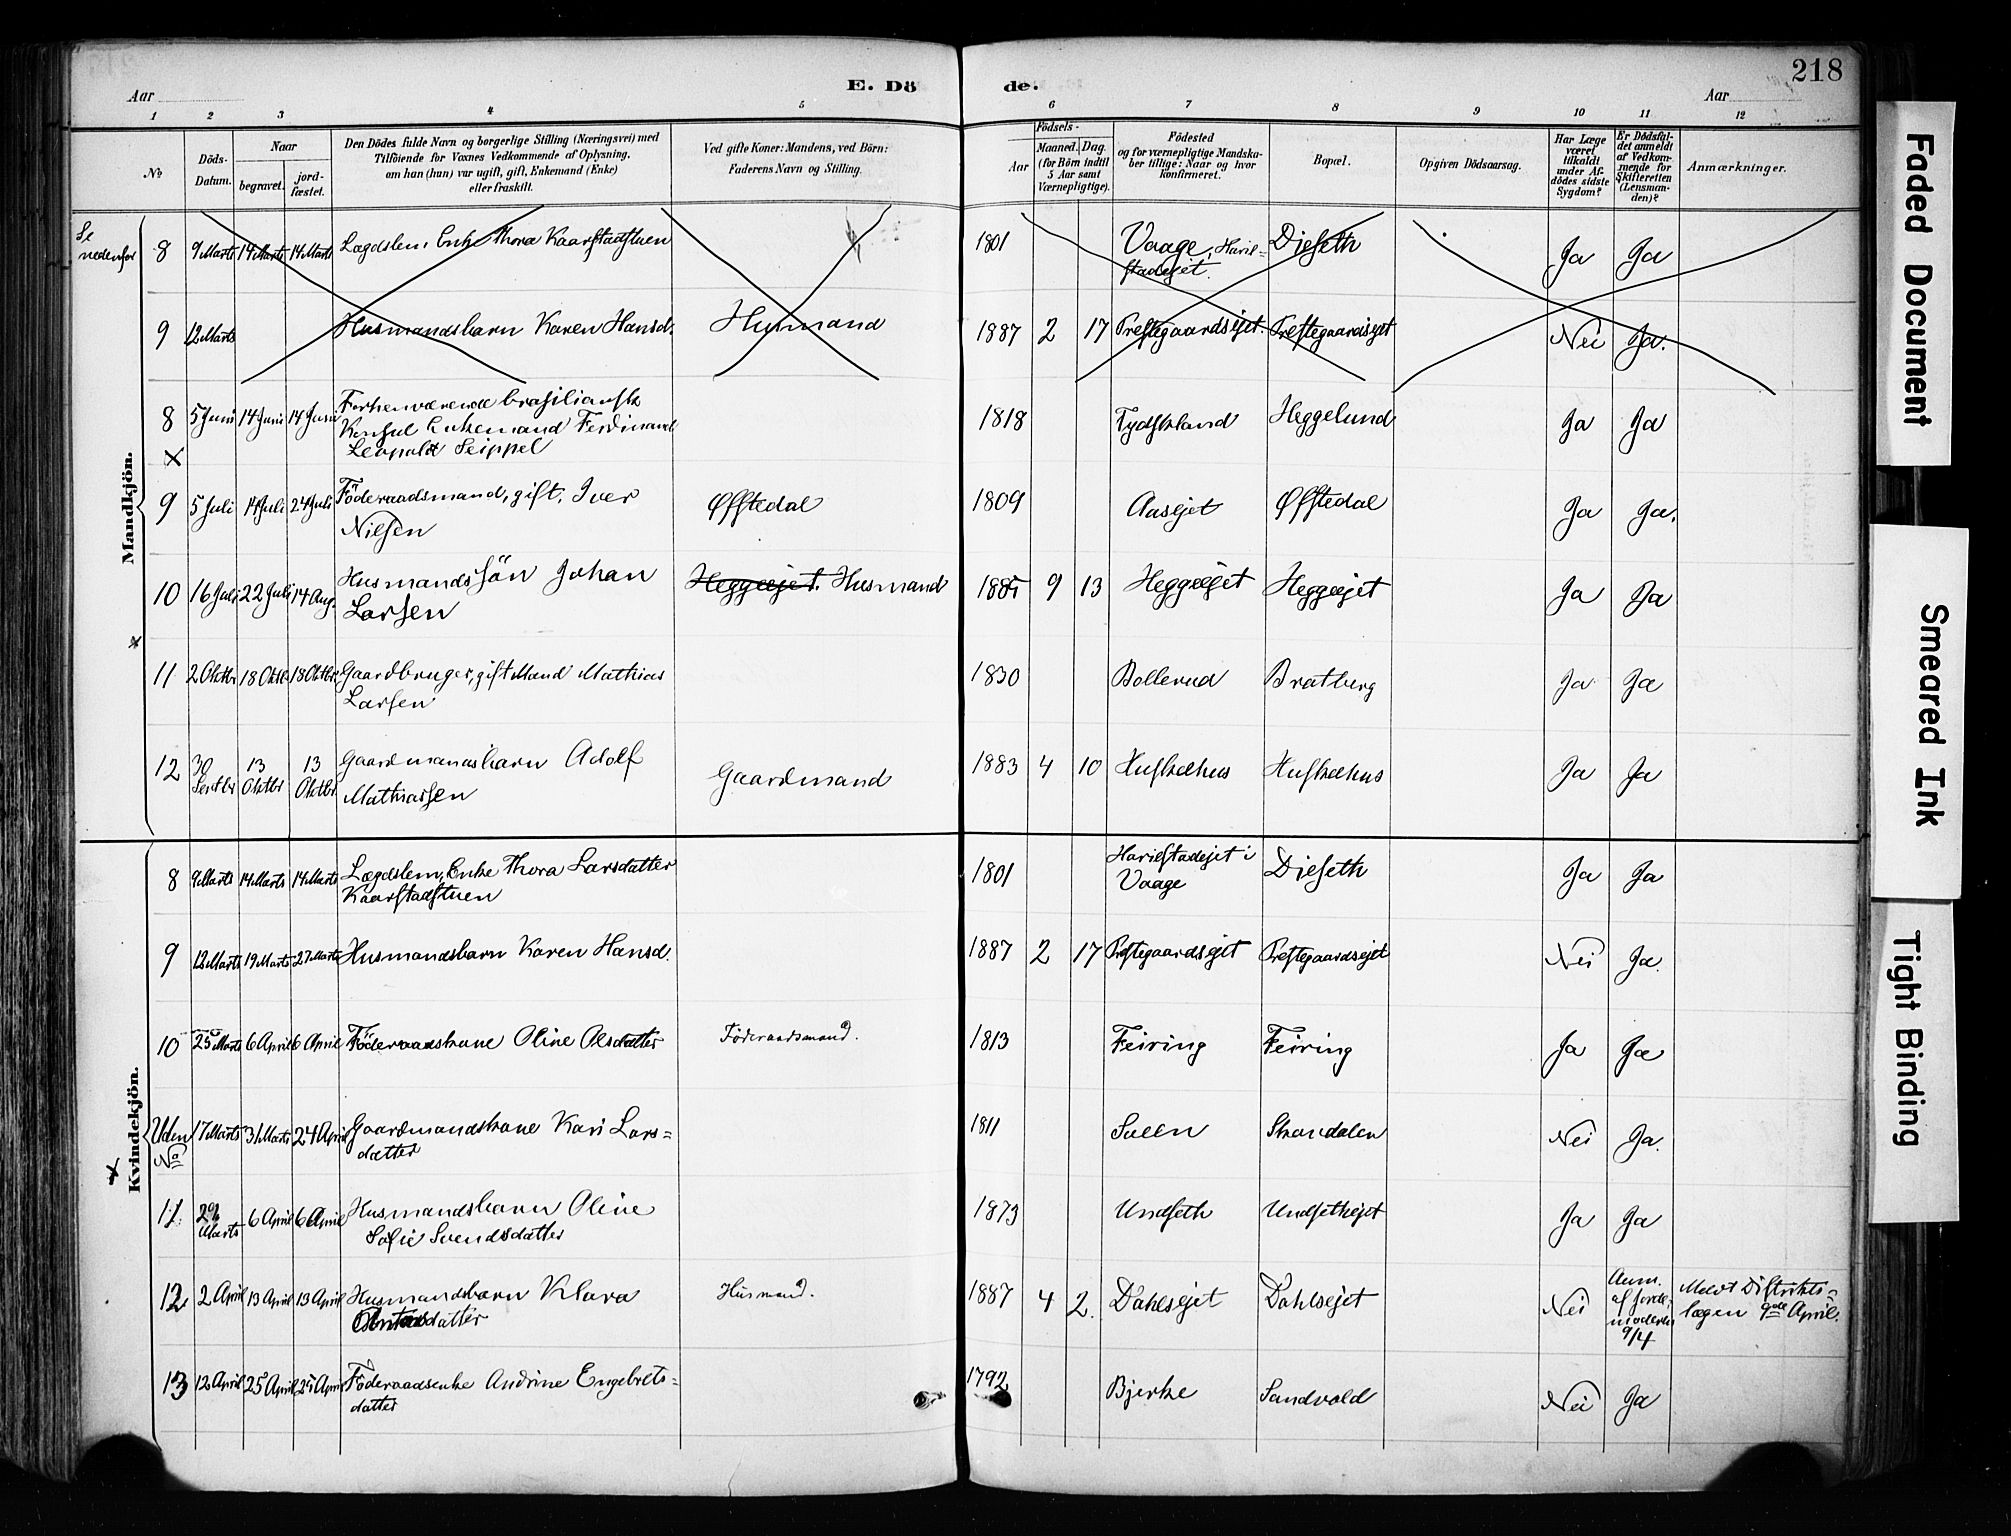 218
E. Döde.
Aar
Aar
1 2 3 4 5 6 7 8 9 10 11 12
No
Döds-Datum.
Naar
begravet.
jord-fæstet.
Den Dödes fulde Navn og borgerlige Stilling (Næringsvei) med
Tilföiende for Voxnes Vedkommende af Oplysning.
om han (hun) var ugift, gift, Enkemand (Enke)
eller fraskilt.
Ved gifte Koner: Mandens, ved Börn:
Faderens Navn og Stilling.
Födsels-
Aar
Maaned. Dag.
(for Börn indtil
5 Aar samt
Værnepligtige).
Födested
og for værnepligtige Mandska-
ber tillige: Naar og hvor
konfirmeret.
Bopæl.
Opgiven Dödsaarsag.
Har Læge
været
tilkaldt
under Af-
dödes sidste
Sygdom?
Er Dödsfal-
det anmeldt
af Vedkom-
mende for
Skifteretten
(Lensman-
den)?
Anmærkninger.
Mandkjön.
Se nedenfor
8 9 Marts 14 Marts 14 Marts Lægdslem, Enke Thora Kaarstadstuen 1801 Vaage, Haril-stadejet. Dieseth Ja Ja
9 12 Marts Husmandsbarn Karen Hansd. Husmand 1887 2 17 Prestegaardsejet. Prestegaardsejet Nei Ja.
8 5 Juni 14 Juni 14 Juni Forhenværende brasiliansk
Konsul Enkemand Ferdinand
Leopold Seippel 1818 Tydskland Heggelund Ja Ja
9 5 Juli 14 Juli 24 Juli Föderaadsmand, gift, Iver
Nilsen Øffstedal 1809 Aasejet Øffstedal Ja Ja.
10 16 Juli 22 Juli 14 Aug. Husmandssön Johan
Larsen Heggeejet. Husmand 1885 9 13 Heggeejet Heggeejet Ja Ja
11 2 Oktbr 18 Oktbr 18 Oktbr Gaardbruger, gift Mand Mathias
Larsen 1830 Bollerud Bratberg Ja Ja
12 30 Septbr 13 Oktbr 13 Oktbr Gaardmandsbarn Adolf
Mathiassen Gaardmand 1883 4 10 Huskehus Huskehus Ja Ja
Kvindekjön.
8 9 Marts 14 Marts 14 Marts Lægdslem, Enke Thora Larsdatter
Kaarstadstuen 1801 Harilstadejet i Vaage Dieseth Ja Ja
9 12 Marts 19 Marts 27 Marts Husmandsbarn Karen Hansd. 1887 2 17 Prestegaardsejet Prestegaardsejet Nei Ja.
10 25 Marts 6 April 6 April Föderaadskone Oline Olsdatter Föderaadsmand. 1813 Feiring Feiring Ja Ja
Uden No 17 Marts 31 Marts 24 April Gaardmandskone Kari Lars=
datter 1811 Sæen Skandalen Nei Ja.
11. 29 Marts 6 April 6 April Husmandsbarn Oline
Sofie Svendsdatter 1873 Undseth Undsethejet Ja Ja
12 2 April 13 April 13 April Husmandsbarn Klara
Antonsdatter Husmand. 1887 4 2. Dahlsejet Dahlsejet Nei Anm. af Jorde-moderen 9/4 Meldt Distrikts=
lægen 9de April.
13 12 April 25 April 25 April Föderaadsenke Andrine Engebrets=
datter 1792 Bjerke Sandvold Nei Ja
Faded Document
Smeared Ink
Tight Binding